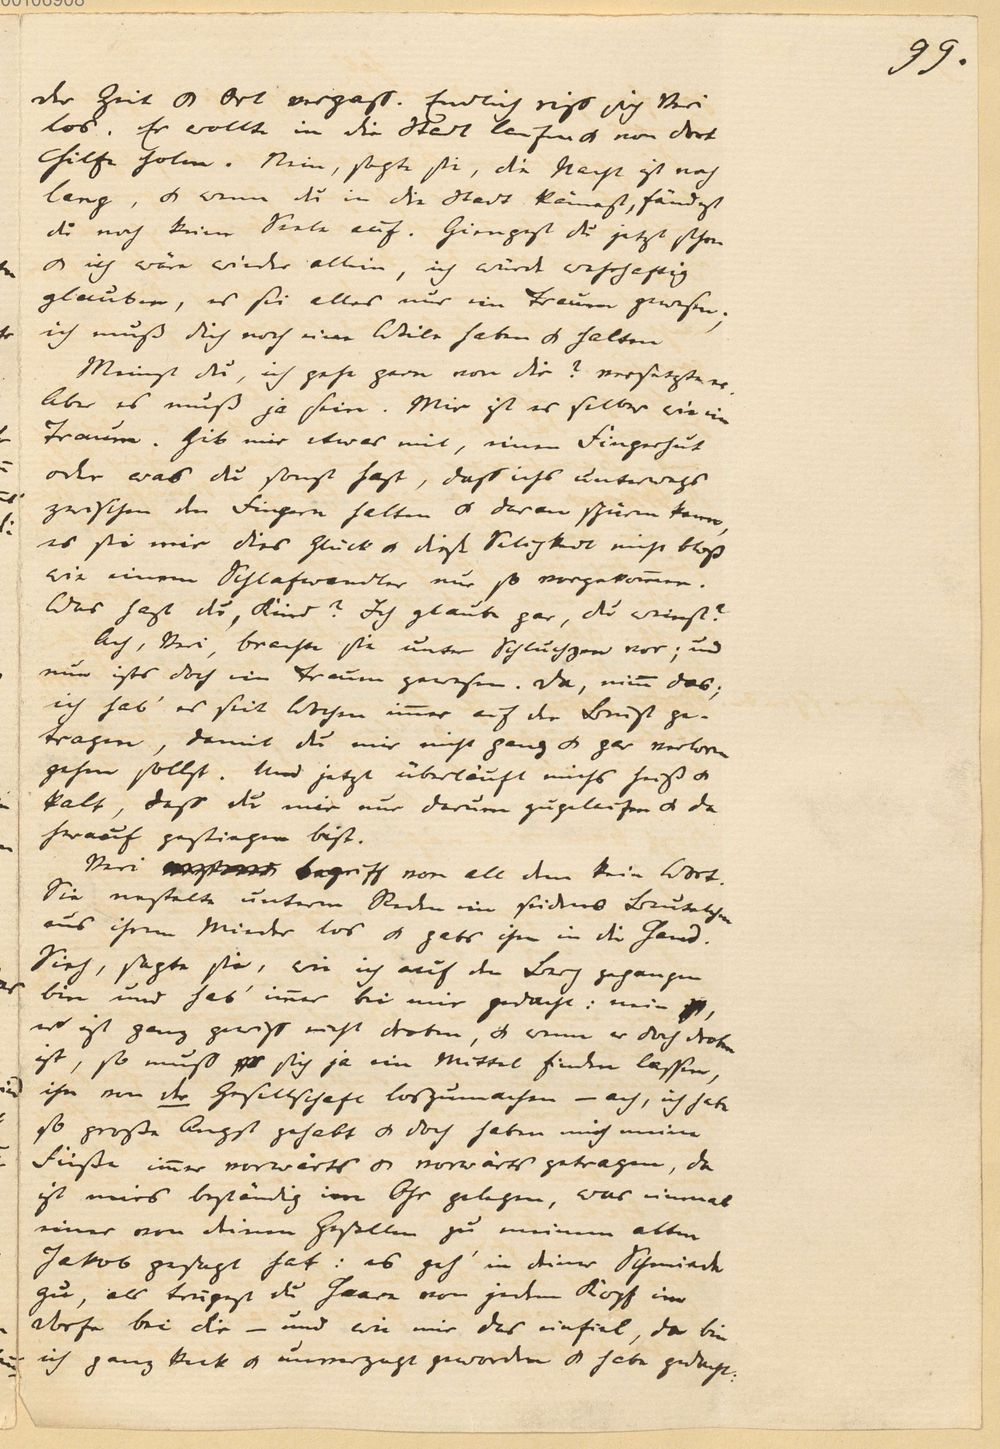 00106908
99.
der Zeit & Ort vergass. Endlich riss sich Veri
los. Er wollte in die Stadt laufen & von dort
Hilfe holen. Nein, sagte sie, die Nacht ist noch
lang, & wenn du in die Stadt kämest, fändest
du noch keine Seele auf. Giengest du jetzt schon
& ich wäre wieder allein, ich würde wahrhaftig
glauben, es sei alles nur ein Traum gewesen;
ich muß dich noch eine Weile haben & halten
Meinst du, ich gehe gern von dir? versetzte er.
Aber es muß ja sein. Mir ist es selber wie ein
Traum. Gib mir etwas mit, einen Fingerhut
oder was du sonst hast, dass ichs unterwegs
zwischen den Fingern halten & daran spüren kann,
es sei mir dies Glück & diese Seligkeit nicht bloß
wie einem Schlafwandler nur so vorgekom̅en.
Was hast du, Kind? Ich glaube gar, du weinst?
Ach, Veri, brachte sie unter Schluchzen vor; und
nun ists doch ein Traum gewesen. Da, nim̅ das;
ich hab' es seit Wochen im̅er auf der Brust ge-
tragen, damit du mir nicht ganz & gar verloren
gehen sollst. Und jetzt überläuft michs heiß &
kalt, dass du mir nur darum zugelaufen & da
herauf gestiegen bist.
Veri begriff von all dem kein Wort.
Sie nestelte unterm Reden ein seidenes Beutelchen
aus ihrem Mieder los & gabs ihm in die Hand.
Sieh, sagte sie, wie ich auf den Berg gegangen
bin und hab' im̅er bei mir gedacht: nein,
er ist ganz gewiss nicht droben, & wenn er doch droben
ist, so muss sich ja ein Mittel finden lassen,
ihn von der Gesellschaft loszumachen – ach, ich habe
so große Angst gehabt & doch haben mich meine
Füße im̅er vorwärts & vorwärts getragen, da
ist mirs beständig im Ohr gelegen, was einmal
einer von deinen Gesellen zu meinem alten
Jakob gesagt hat: es geh' in deiner Schmiede
zu, als trügest du Haare von jedem Kopf im
Dorfe bei dir – und wie mir das einfiel, da bin
ich ganz keck & unverzagt geworden & habe gedacht: